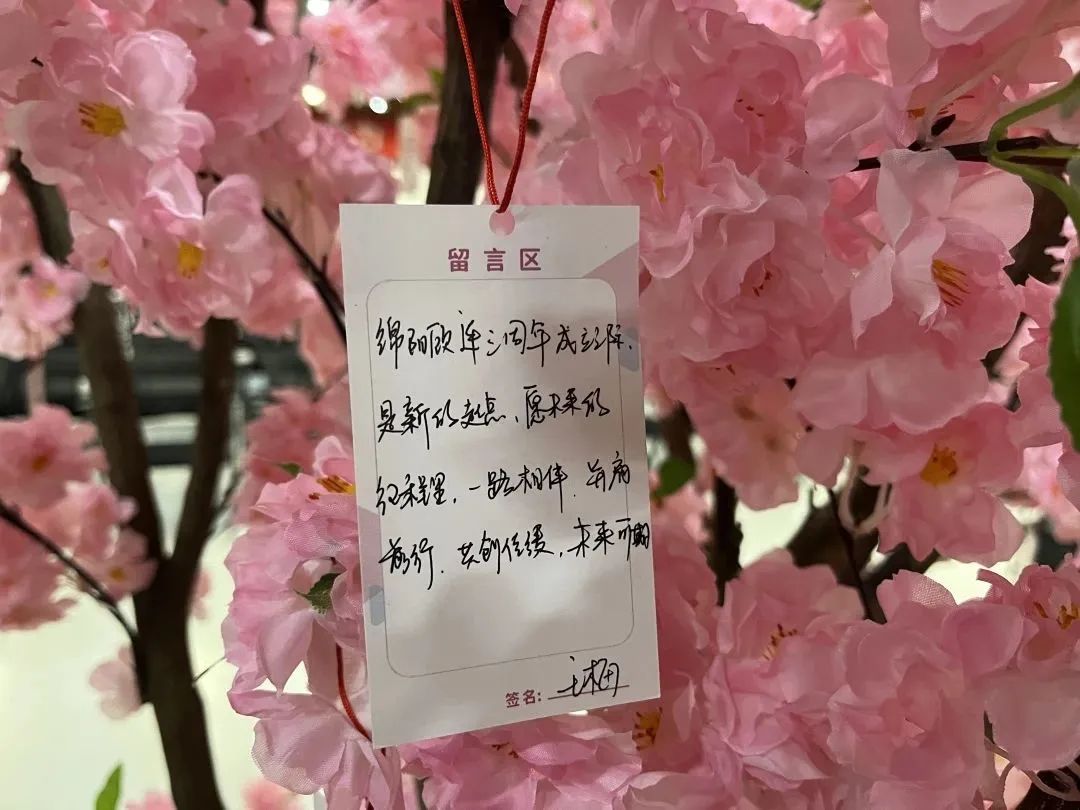 留言区
绵阳欧连三周年成立之际，
是新的起点、愿未来的
红程里，一路相伴，并肩
前行，共创佳绩，未来可期
签名：